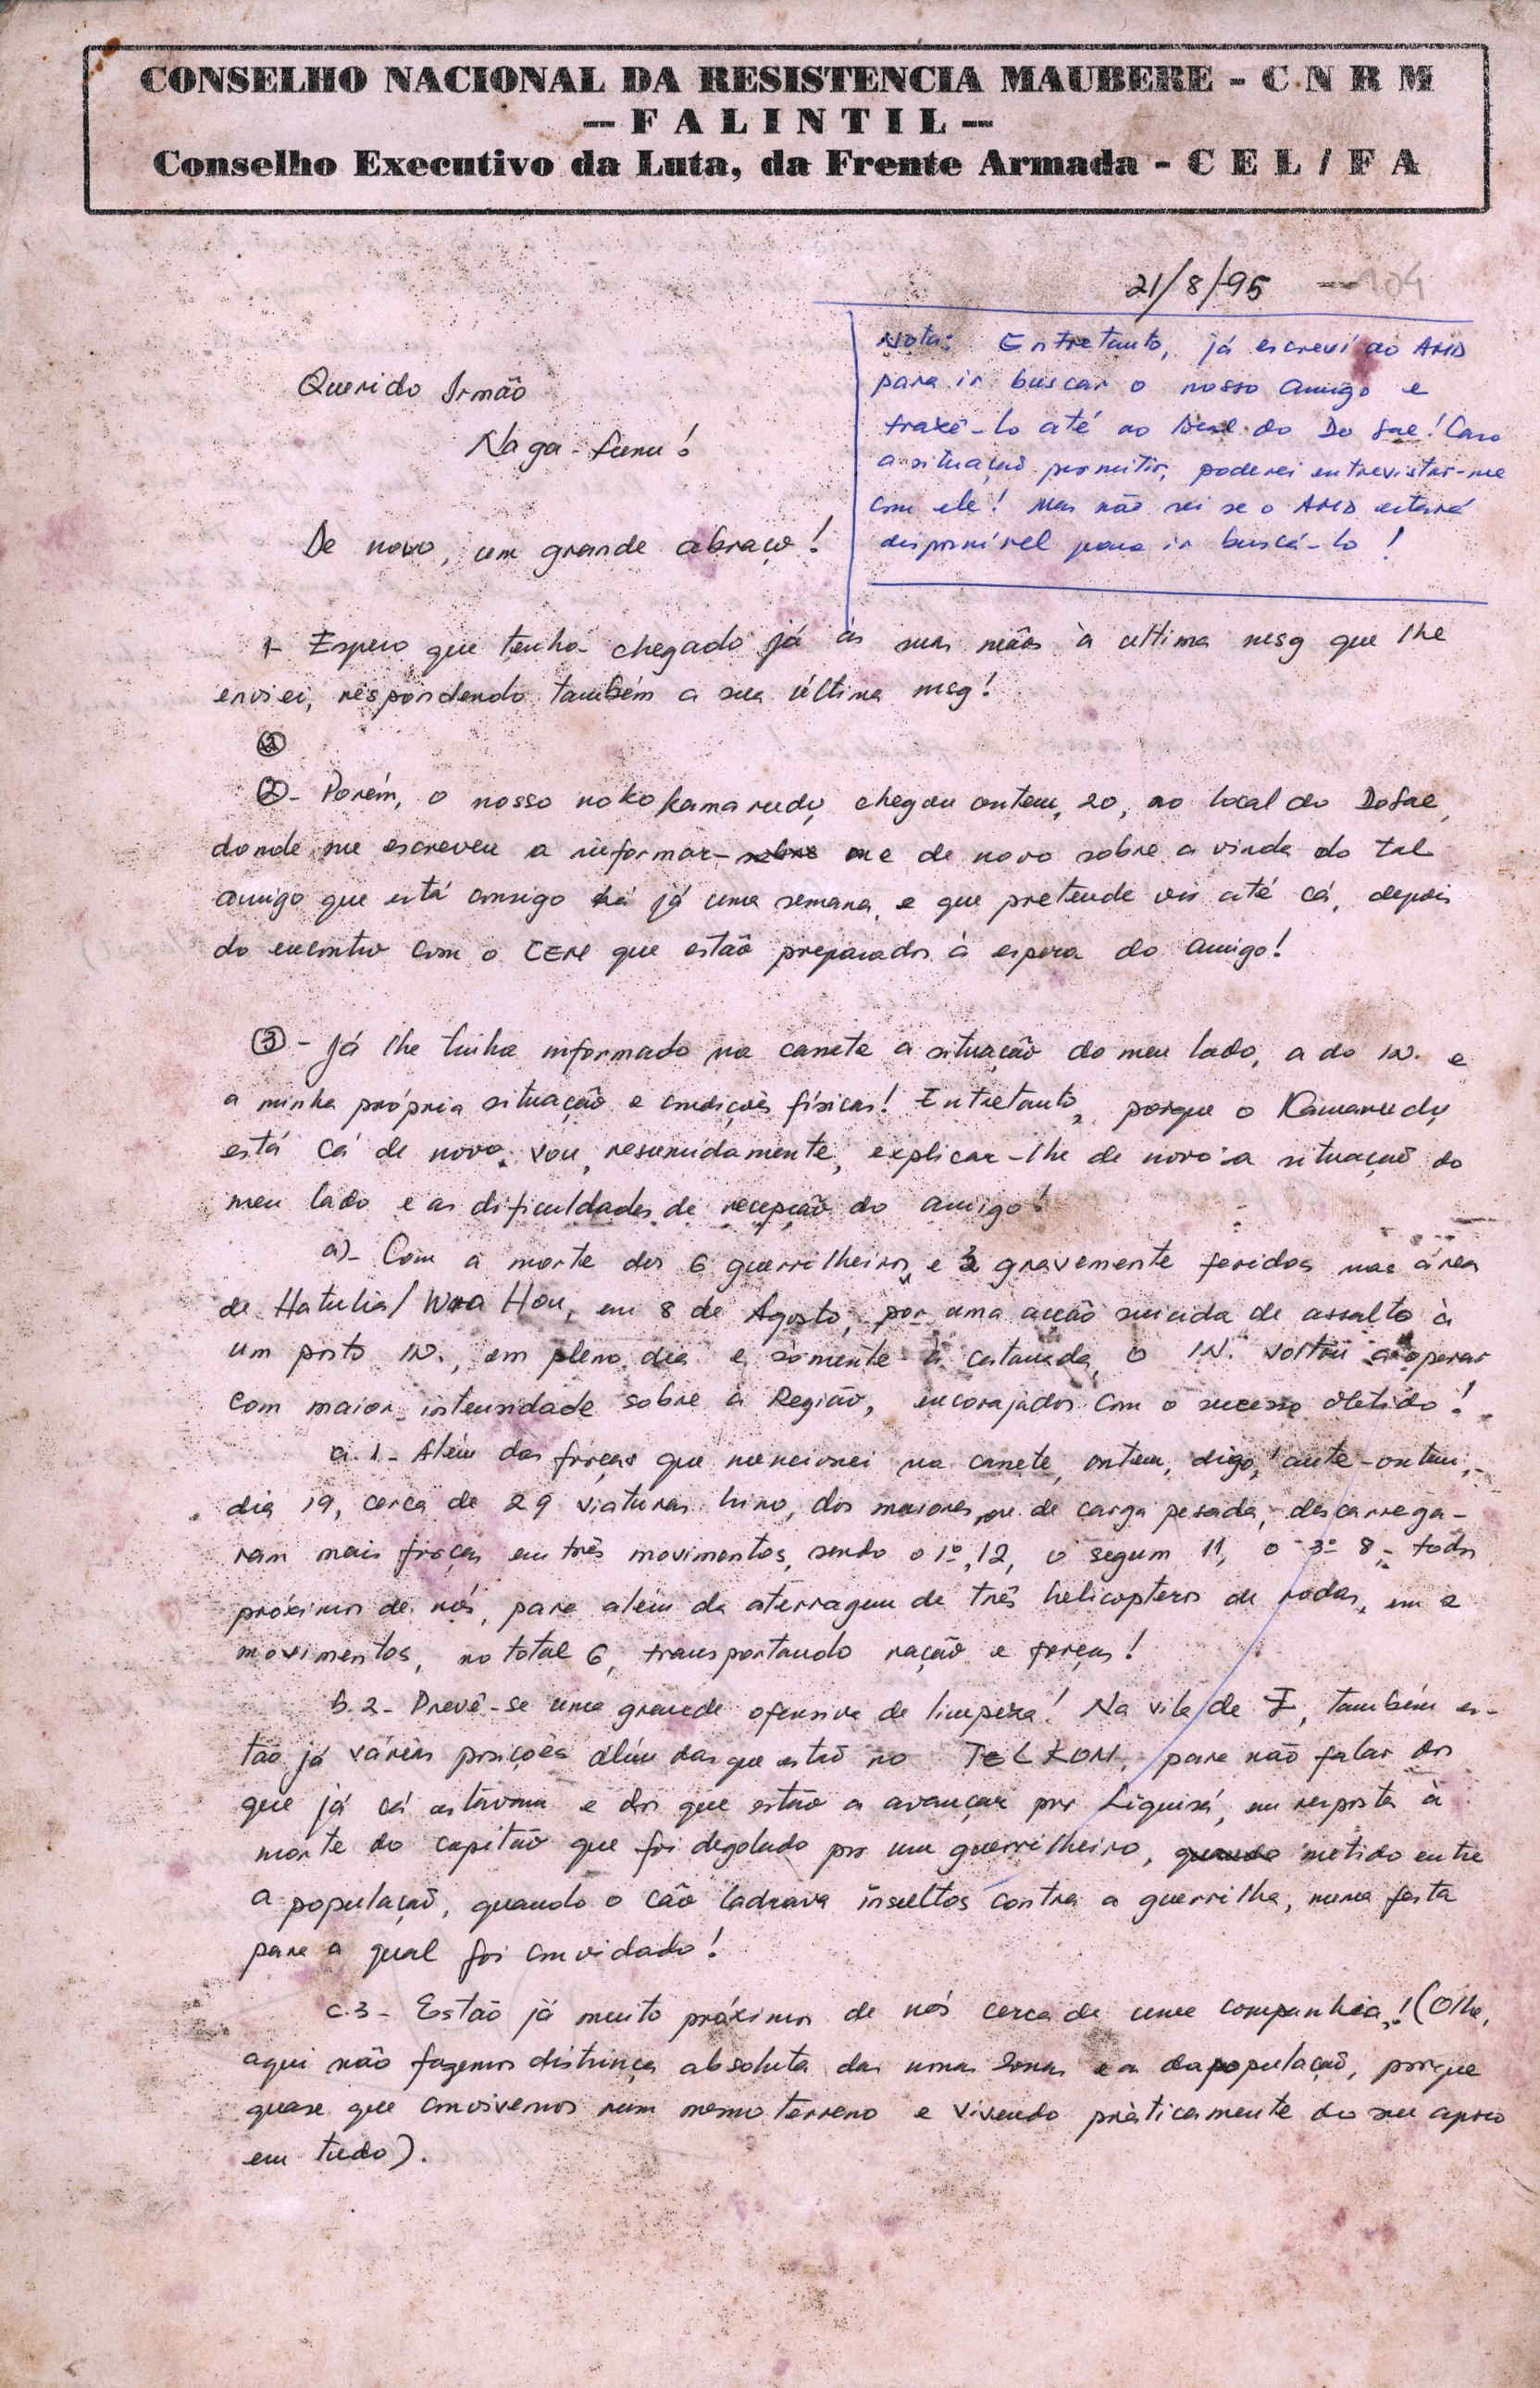 CONSELHO NACIONAL DA RESISTENCIA MAUBERE - C N R M
— F A L I N T I L —
Conselho Executivo da Luta, da Frente Armada - C E L / F A
21/8/95
Nota: Entretanto, já escrevi ao AMD
para ir buscar o nosso amigo e
traxê-lo até ao local do Do Sae! Caso
a situação permitir, poderei entrevistar-me
com ele! Mas não sei se o AMD estará
disponível para ir buscá-lo!
Querido Irmão
Naga-funu!
De novo, um grande abraço!
1- Espero que tenha chegado já às suas mãos a ultima mesg que lhe
enviei, respondendo também a sua última msg!
2
2- Porém, o nosso noko Kamarudy, chegou ontem, 20, ao local do DoSae,
donde me escreveu a informar-sobre me de novo sobre a vinda do tal
amigo que está consigo há já uma semana, e que pretende vir até cá, depois
do encontro com o CERE que estão preparados à espera do amigo!
3- Já lhe tinha informado na cassete a situação do meu lado, a do IN. e
a minha própria situação e condições físicas! Entretanto, porque o Kamarudy
está cá de novo, vou, resumidamente, explicar-lhe de novo a situação do
meu lado e as dificuldades de recepção do amigo!
a)- Com a morte dos 6 guerrilheiros, e 3 gravemente feridos nas área
de Hatulia/ Hou, em 8 de Agosto, por uma acção suicida de assalto à
um posto IN., em pleno dia e sòmente à catanada, o IN. voltou a operar
com maior intensidade sobre a Região, encorajados com o sucesso obtido!
a.1- Além das forças que mencionei na cassete, ontem, digo, ante-ontem,
dia 19, cerca de 29 viaturas hino, dos maiores, ou de carga pesada, descarrega-
ram mais forças em três movimentos, sendo o 1º, 12, o segum 11, o 3º 8, todos
próximos de nós, para além da aterragem de três helicopteros de rodas, em 2
movimentos, no total 6, transportando ração e forças!
b.2- Prevê-se uma grande ofensiva de limpeza! Na vila de I, também es-
tão já várias posições além das que estão no TELKOM, para não falar dos
que já cá estavam e dos que estão a avançar por Liquisá, em resposta à
morte do capitão que foi degolado por um guerrilheiro, quando metido entre
a população, quando o cão ladrava insultos contra a guerrilha, numa festa
para a qual foi convidado!
c.3- Estão já muito próximos de nós cerca de uma companhia! (Olhe,
aqui não fazemos distinça absoluta das nossas zonas e a da população, porque
quase que convivemos num mesmo terreno e vivendo pràticamente do seu apoio
em tudo).